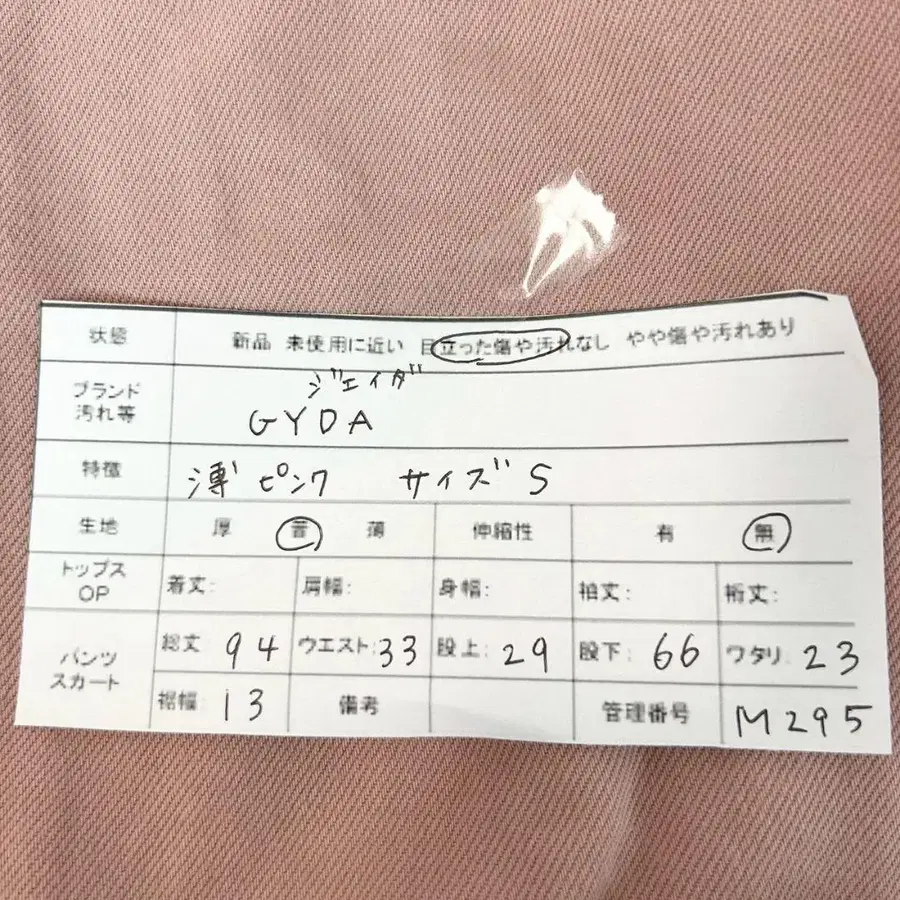 状態 新品 未使用に近い 目立った傷や汚れなし やや傷や汚れあり
ブランド
汚れ等
ジェイダ
GYDA
特徴 薄ピンク サイズS
生地 厚 普 薄 伸縮性 有 無
トップス
OP
着丈: 肩幅: 身幅: 袖丈: 裄丈:
パンツ
スカート
総丈 94 ウエスト:33 股上:29 股下:66 ワタリ:23
裾幅 13 備考 管理番号 M295